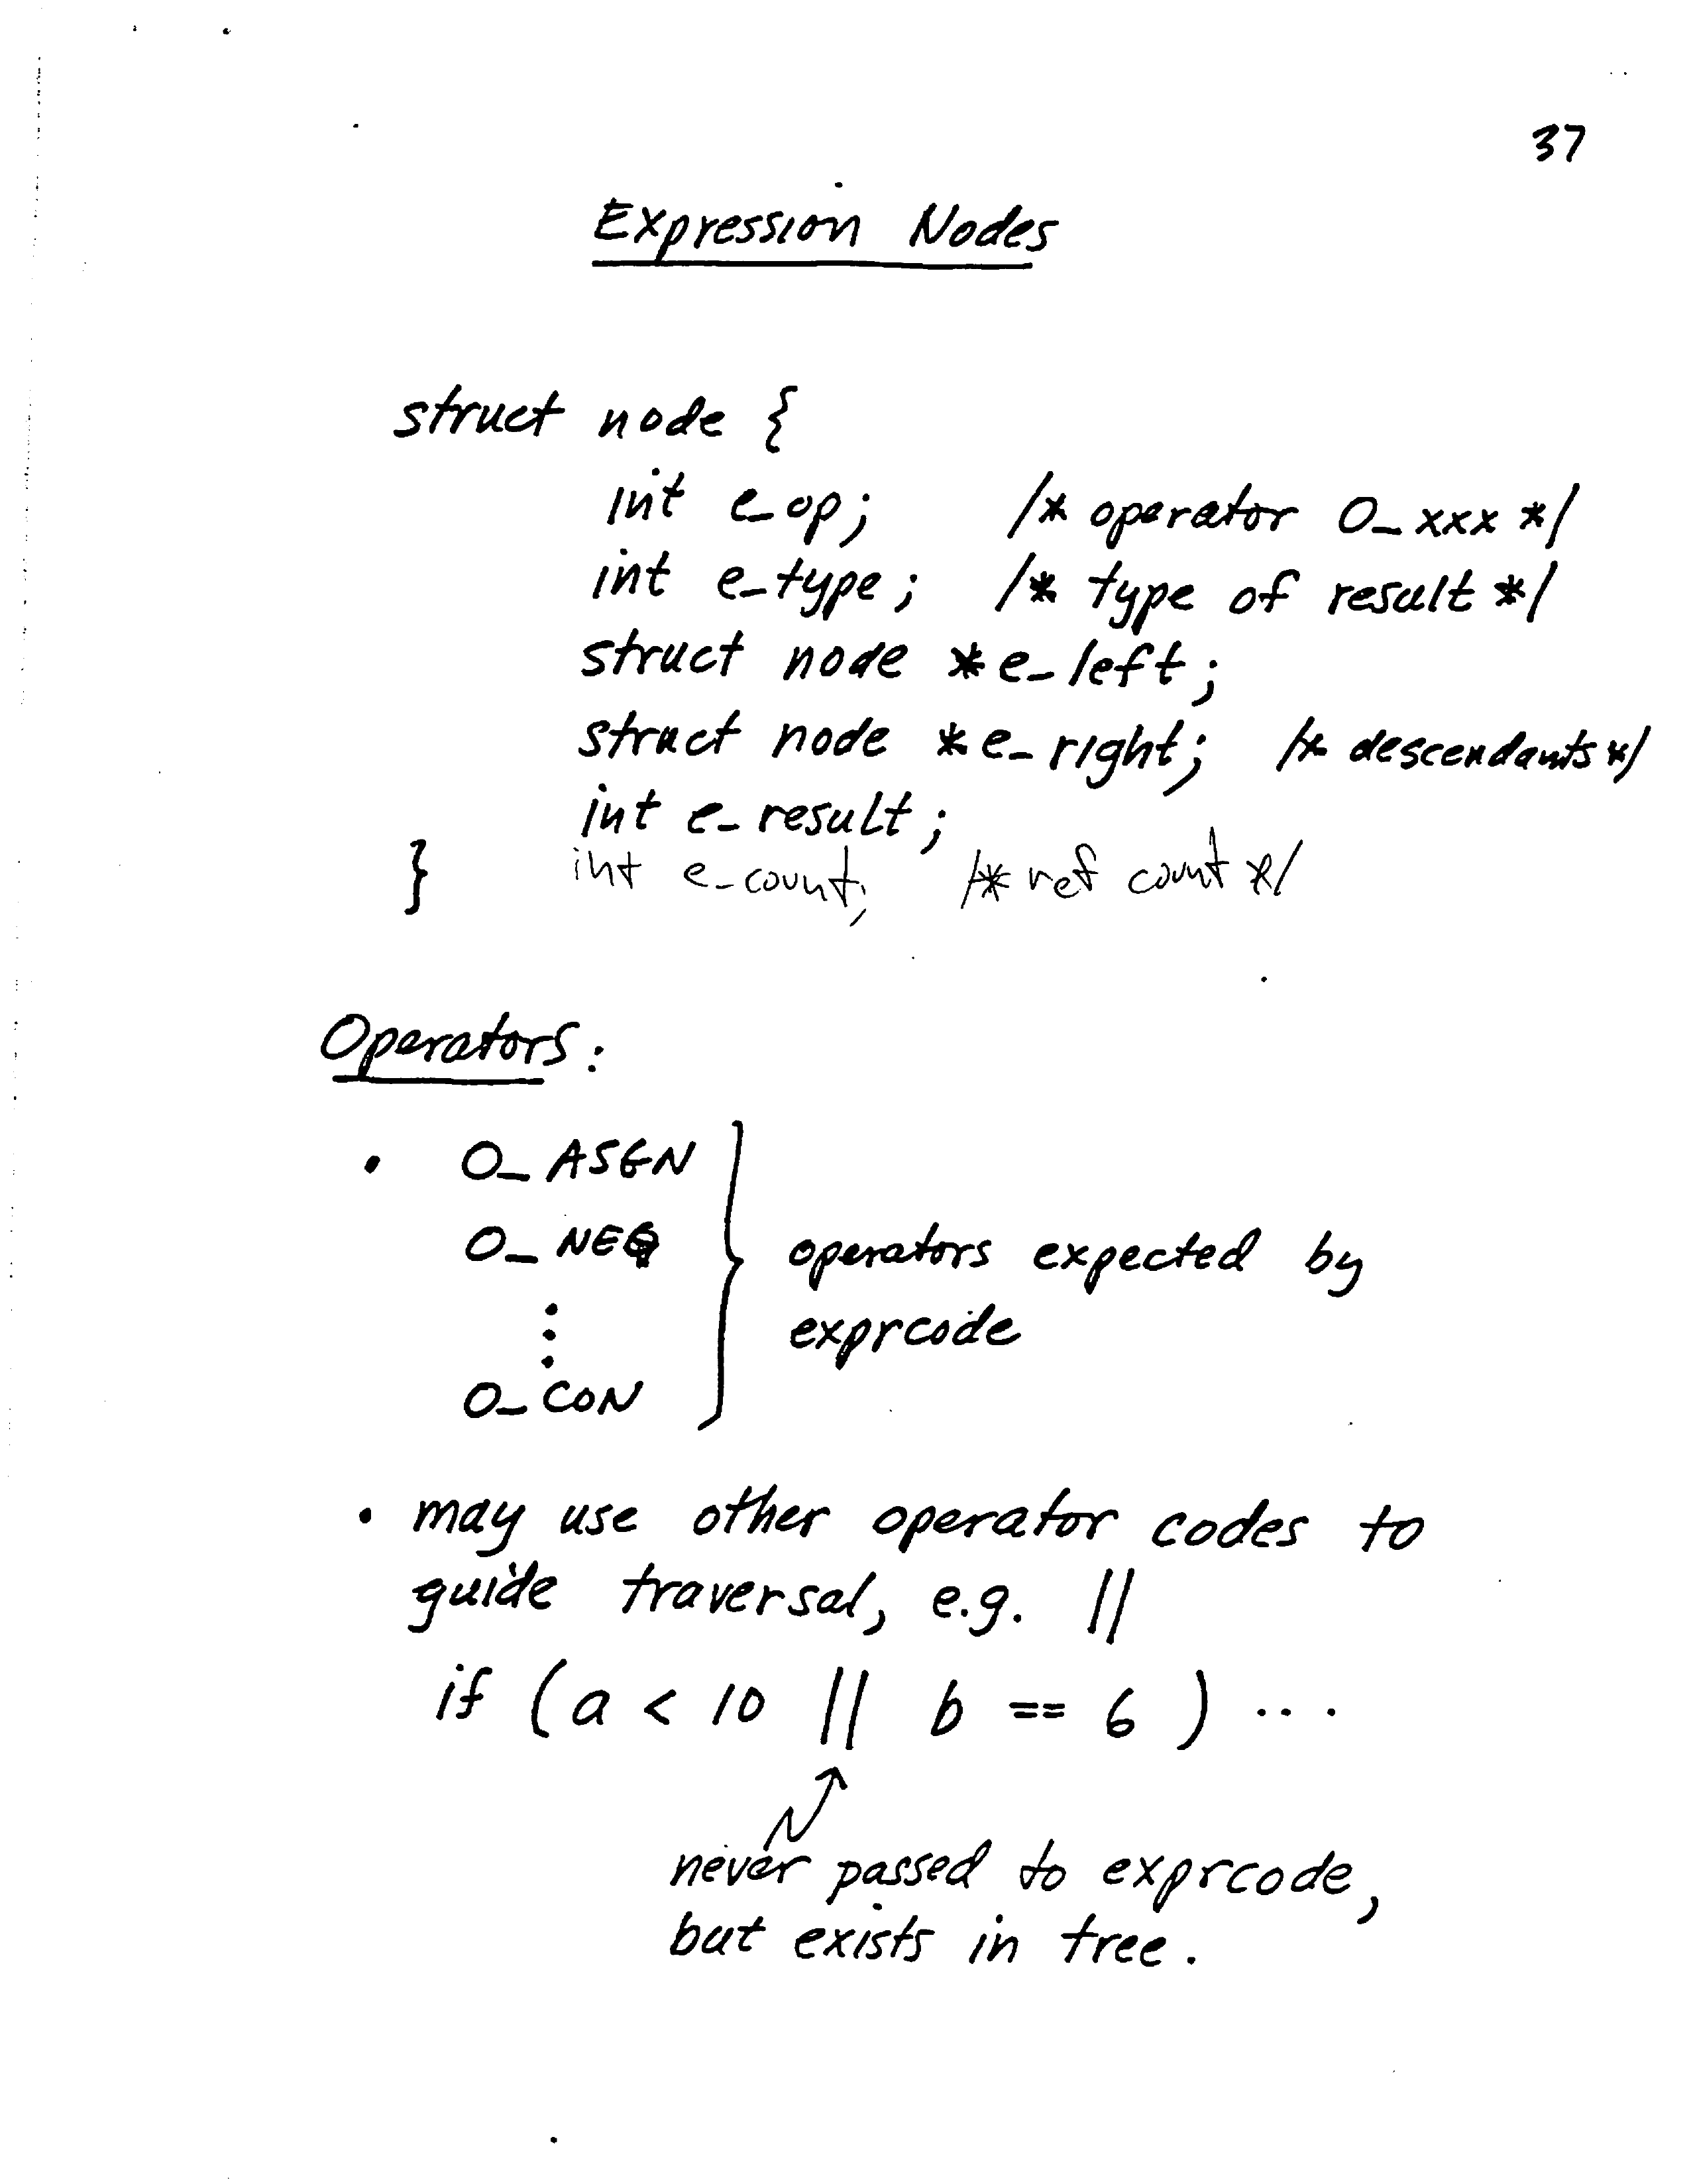 37
Expression Nodes
struct node {
int e_op; /* operator O_xxx */
int e_type; /* type of result */
struct node *e_left;
struct node *e_right; /* descendants */
int e_result;
} int e_count; /* ref count */
Operators:
• O_ASGN
O_NEQ
operators expected by
exprcode
O_CON
• may use other operator codes to
guide traversal, e.g. ||
if (a < 10 || b == 6 ) ....
never passed to exprcode,
but exists in tree.